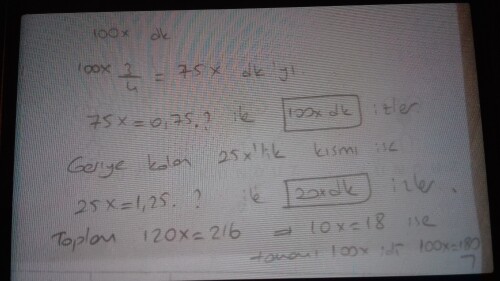 100x dk
100x 3/4 = 75x dk'yı
75x = 0,75.? ile 100x dk izler
Geriye kalan 25x'lik kısmı ise
25x = 1,25.? ile 20x dk izler.
Toplam 120x = 216 → 10x = 18 ise
tamamı 100x idi 100x = 180